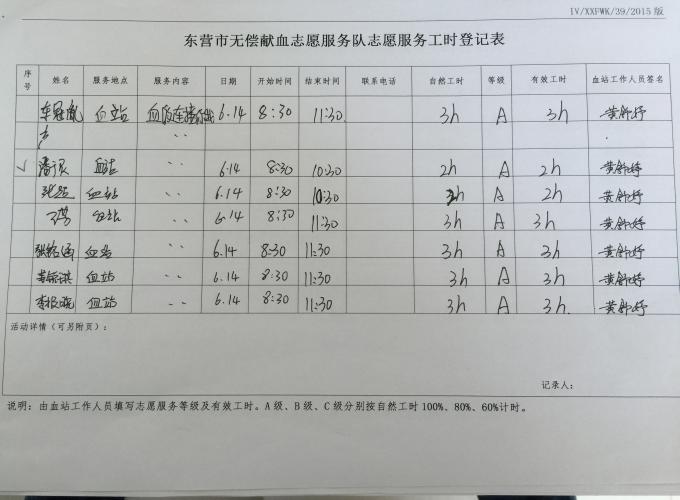 IV/XXFWK/39/2015版
东营市无偿献血志愿服务队志愿服务工时登记表
序号 姓名 服务地点 服务内容 日期 开始时间 结束时间 联系电话 自然工时 等级 有效工时 血站工作人员签名
血站 6.14 8:30 11:30 3h A 3h 黄舒婷
√ 血站 〃 6.14 8:30 10:30 2h A 2h 黄舒婷
张超 血站 〃 6.14 8:30 10:30 2h A 2h 黄舒婷
血站 〃 6.14 8:30 11:30 3h A 3h 黄舒婷
血站 〃 6.14 8:30 11:30 3h A 3h 黄舒婷
血站 〃 6.14 8:30 11:30 3h A 3h 黄舒婷
血站 〃 6.14 8:30 11:30 3h A 3h 黄舒婷
活动详情（可另附页）：
记录人：
说明：由血站工作人员填写志愿服务等级及有效工时。A级、B级、C级分别按自然工时100%、80%、60%计时。